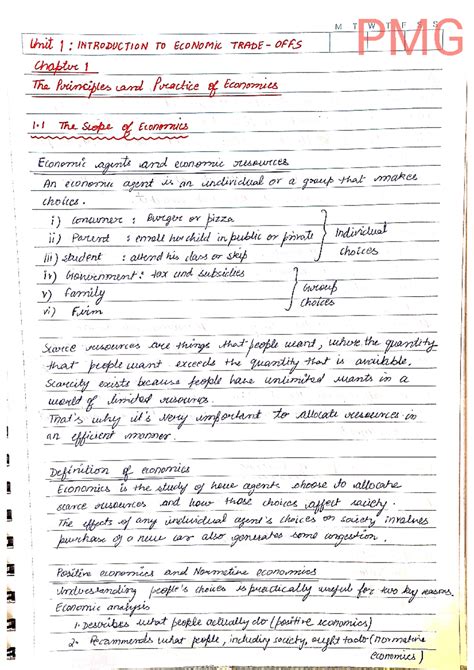 M T W T F S S
PMG
Unit 1 : INTRODUCTION TO ECONOMIC TRADE-OFFS
Chapter 1
The Principles and Practice of Economics
1.1 The Scope of Economics
Economic agents and economic resources
An economic agent is an individual or a group that makes
choices.
i) consumer : Burger or pizza
ii) Parent : enroll her child in public or private
iii) student : attend his class or skip
Individual
choices
iv) Government : tax and subsidies
v) family
vi) Firm
Group
choices
Scarce resources are things that people want, where the quantity
that people want exceeds the quantity that is available.
Scarcity exists because people have unlimited wants in a
world of limited resources.
That's why it's very important to allocate resources in
an efficient manner.
Definition of economics
Economics is the study of how agents choose to allocate
scarce resources and how those choices affect society.
The effects of any individual agent's choices on society involves
purchase of a new car also generates some congestion.
Positive economics and Normative economics
Understanding people's choices is practically useful for two key reasons.
Economic analysis
1. Describes what people actually do (positive economics)
2. Recommends what people, including society, ought to do (normative
economics)